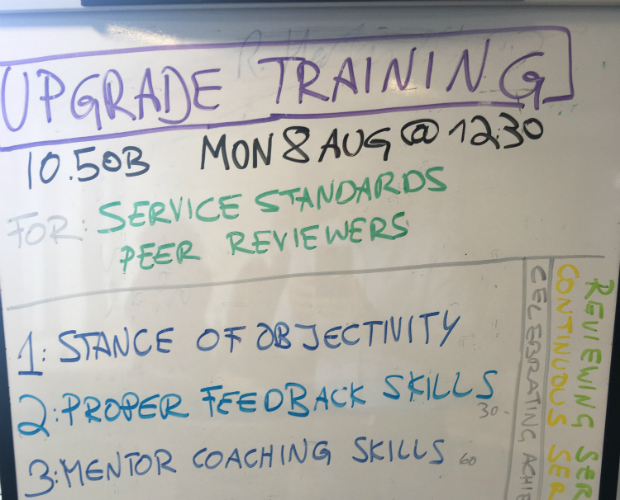 UPGRADE TRAINING
10.50B MON 8 AUG @ 1230
FOR: SERVICE STANDARDS
PEER REVIEWERS
1: STANCE OF OBJECTIVITY
2: PROPER FEEDBACK SKILLS 30-
3: MENTOR COACHING SKILLS 60
CELEBRATING ACHIE
CONTINUOUS SER
REVIEWING SER